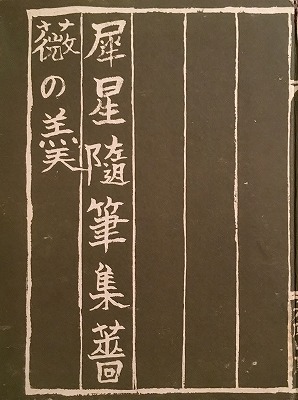 犀星隨筆集薔
薇の羹